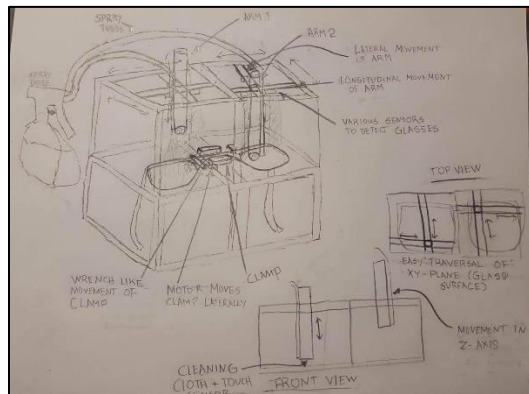 SPRAY
TUBES
ARM 1
ARM 2
LATERAL MOVEMENT
OF ARM
LONGITUDINAL MOVEMENT
OF ARM
VARIOUS SENSORS
TO DETECT GLASSES
TOP VIEW
EASY TRAVERSAL OF
XY-PLANE (GLASS
SURFACE)
WRENCH LIKE
MOVEMENT OF
CLAMP
MOTOR MOVES
CLAMP LATERALLY
CLAMP
MOVEMENT IN
Z-AXIS
CLEANING
CLOTH + TOUCH
FRONT VIEW